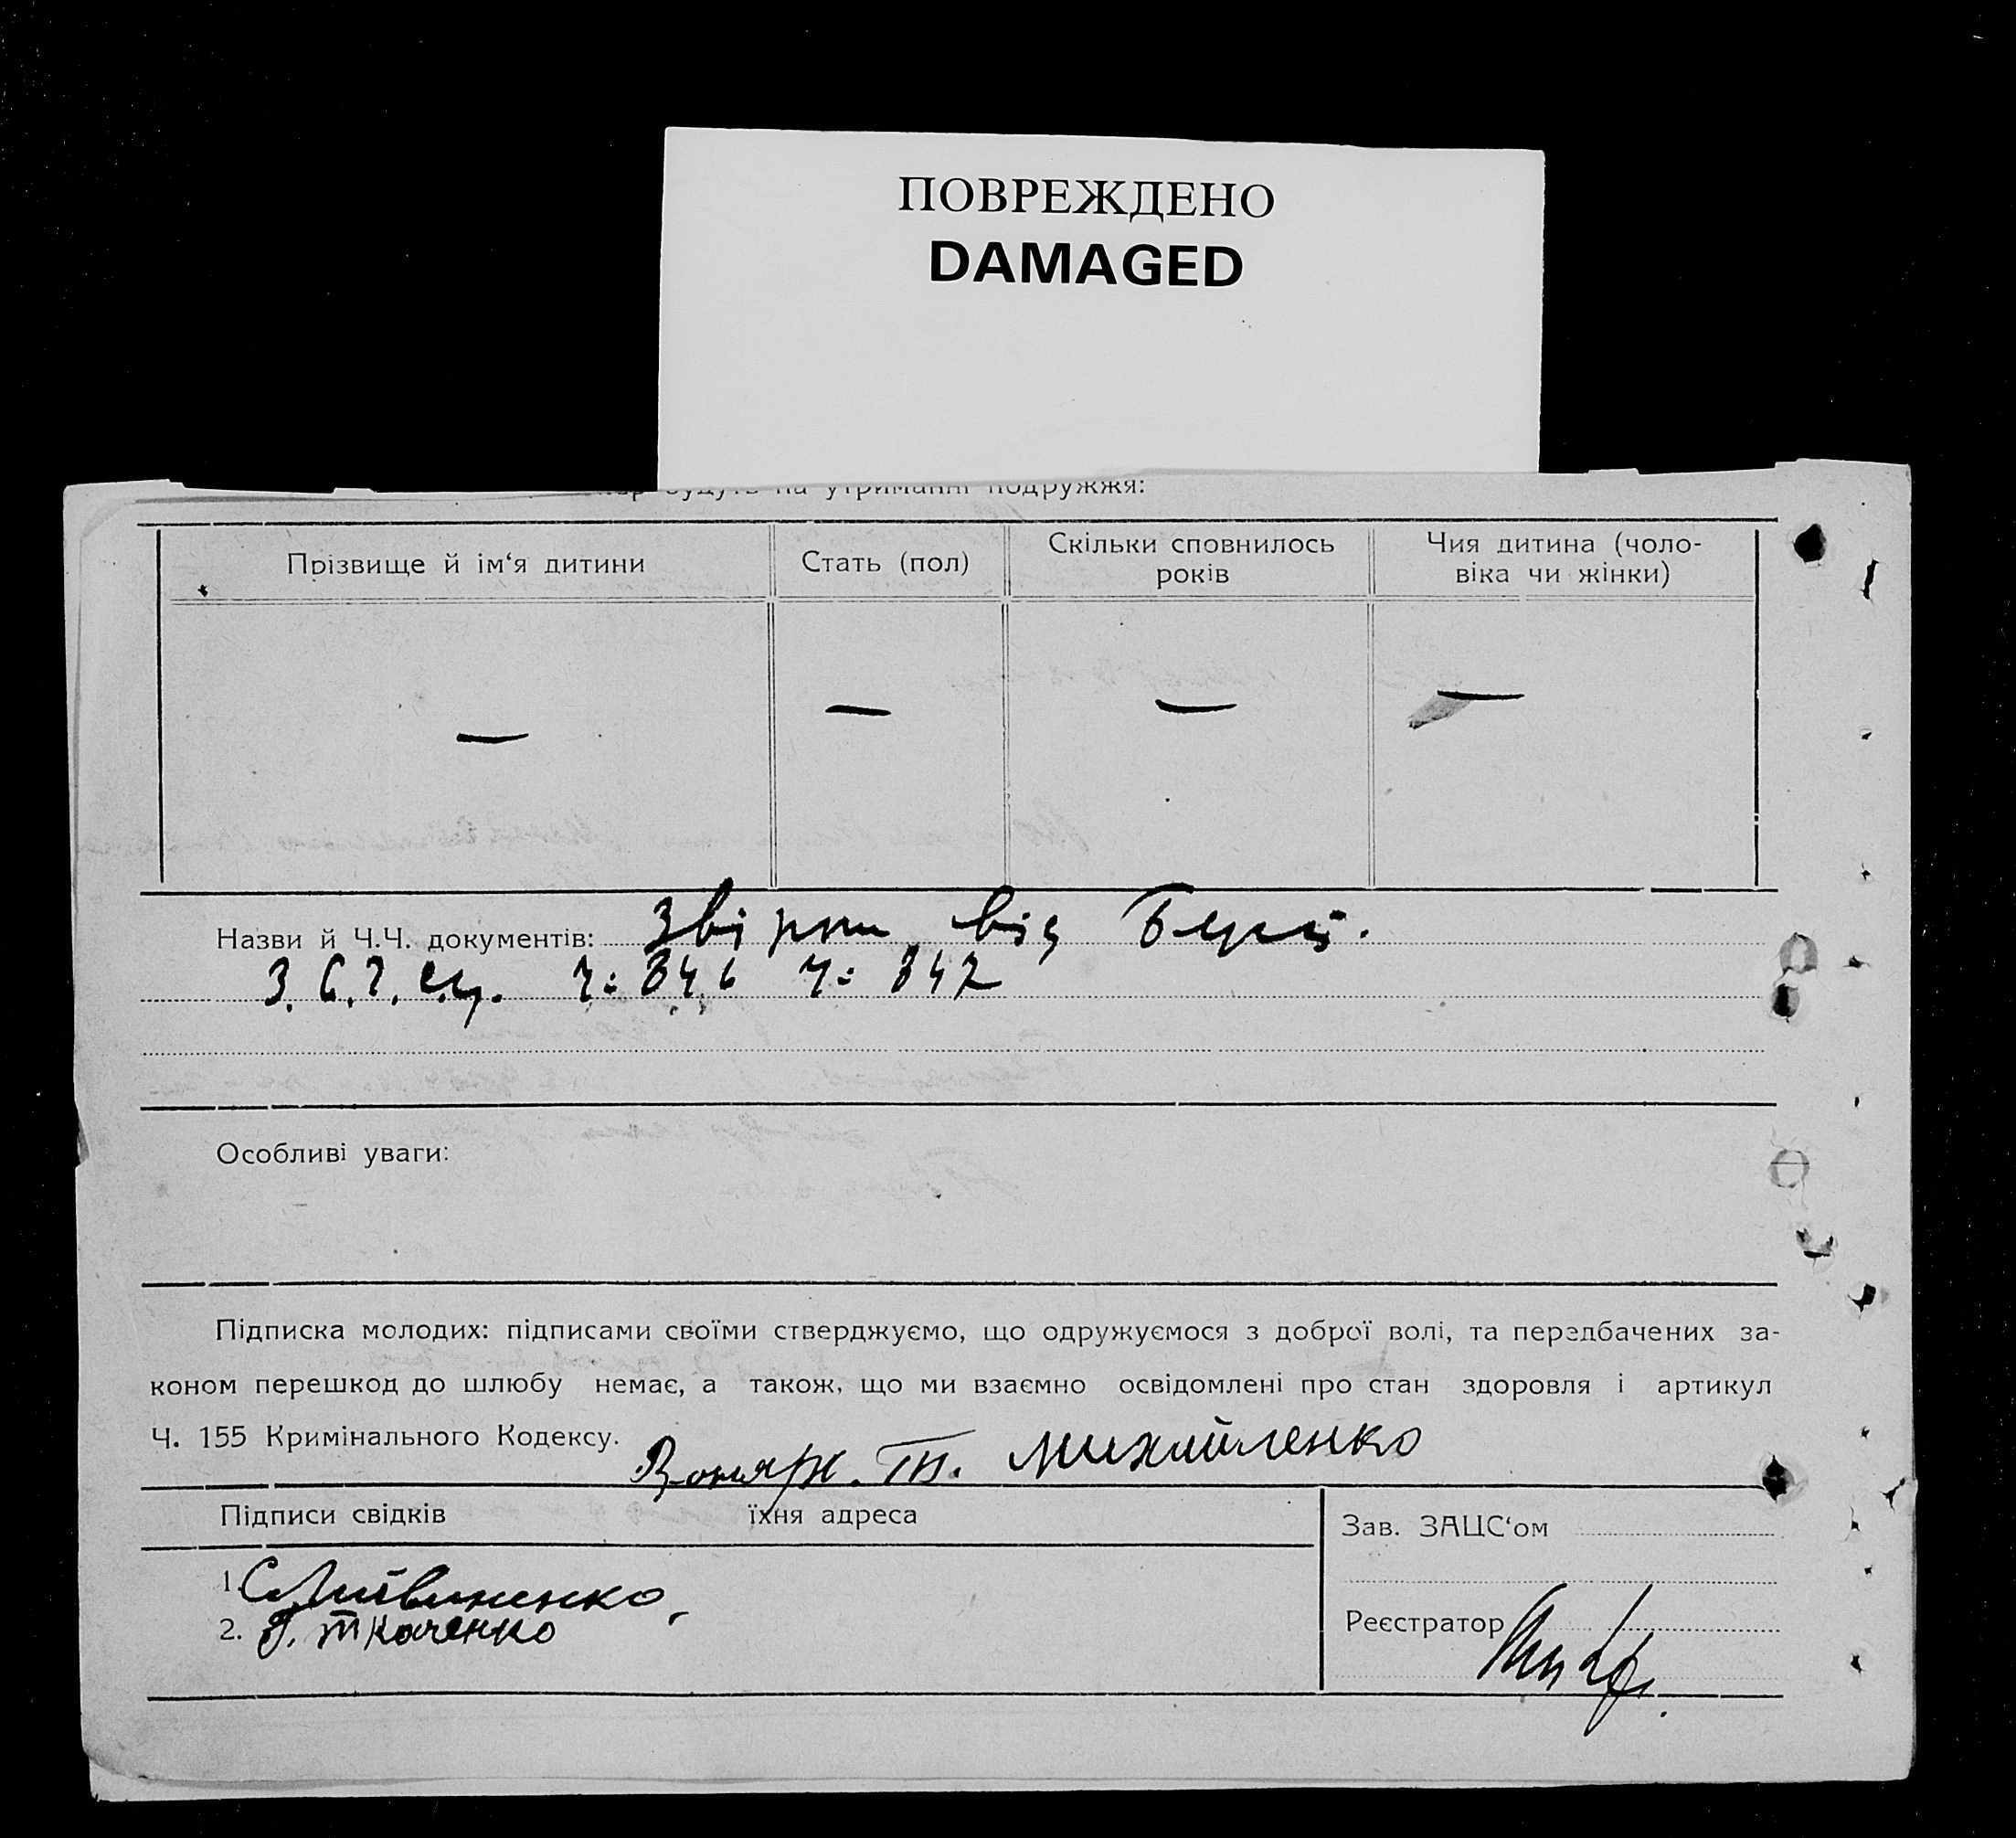 ПОВРЕЖДЕНО
DAMAGED
будуть на утриманні подружжя:
Прізвище й ім‘я дитини
Стать (пол)
Скільки сповнилось
років
Чия дитина (чоло-
віка чи жінки)
— — — —
Назви й Ч.Ч. документів: від
ч: 346 ч: 347
Особливі уваги:
Підписка молодих: підписами своїми стверджуємо, що одружуємося з доброї волі, та передбачених за-
коном перешкод до шлюбу немає, а також, що ми взаємно освідомлені про стан здоровля і артикул
Ч. 155 Кримінального Кодексу.
Михайленко
Підписи свідків їхня адреса
Зав. ЗАЦС‘ом
1. С Литвиненко,
2. Г. Ткаченко
Реєстратор